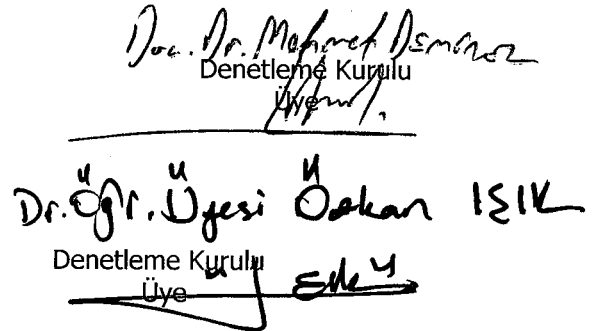 Doç. Dr. Mehmet Demirez
Denetleme Kurulu
Üye
Dr. Öğr. Üyesi Özkan IŞIK
Denetleme Kurulu
Üye